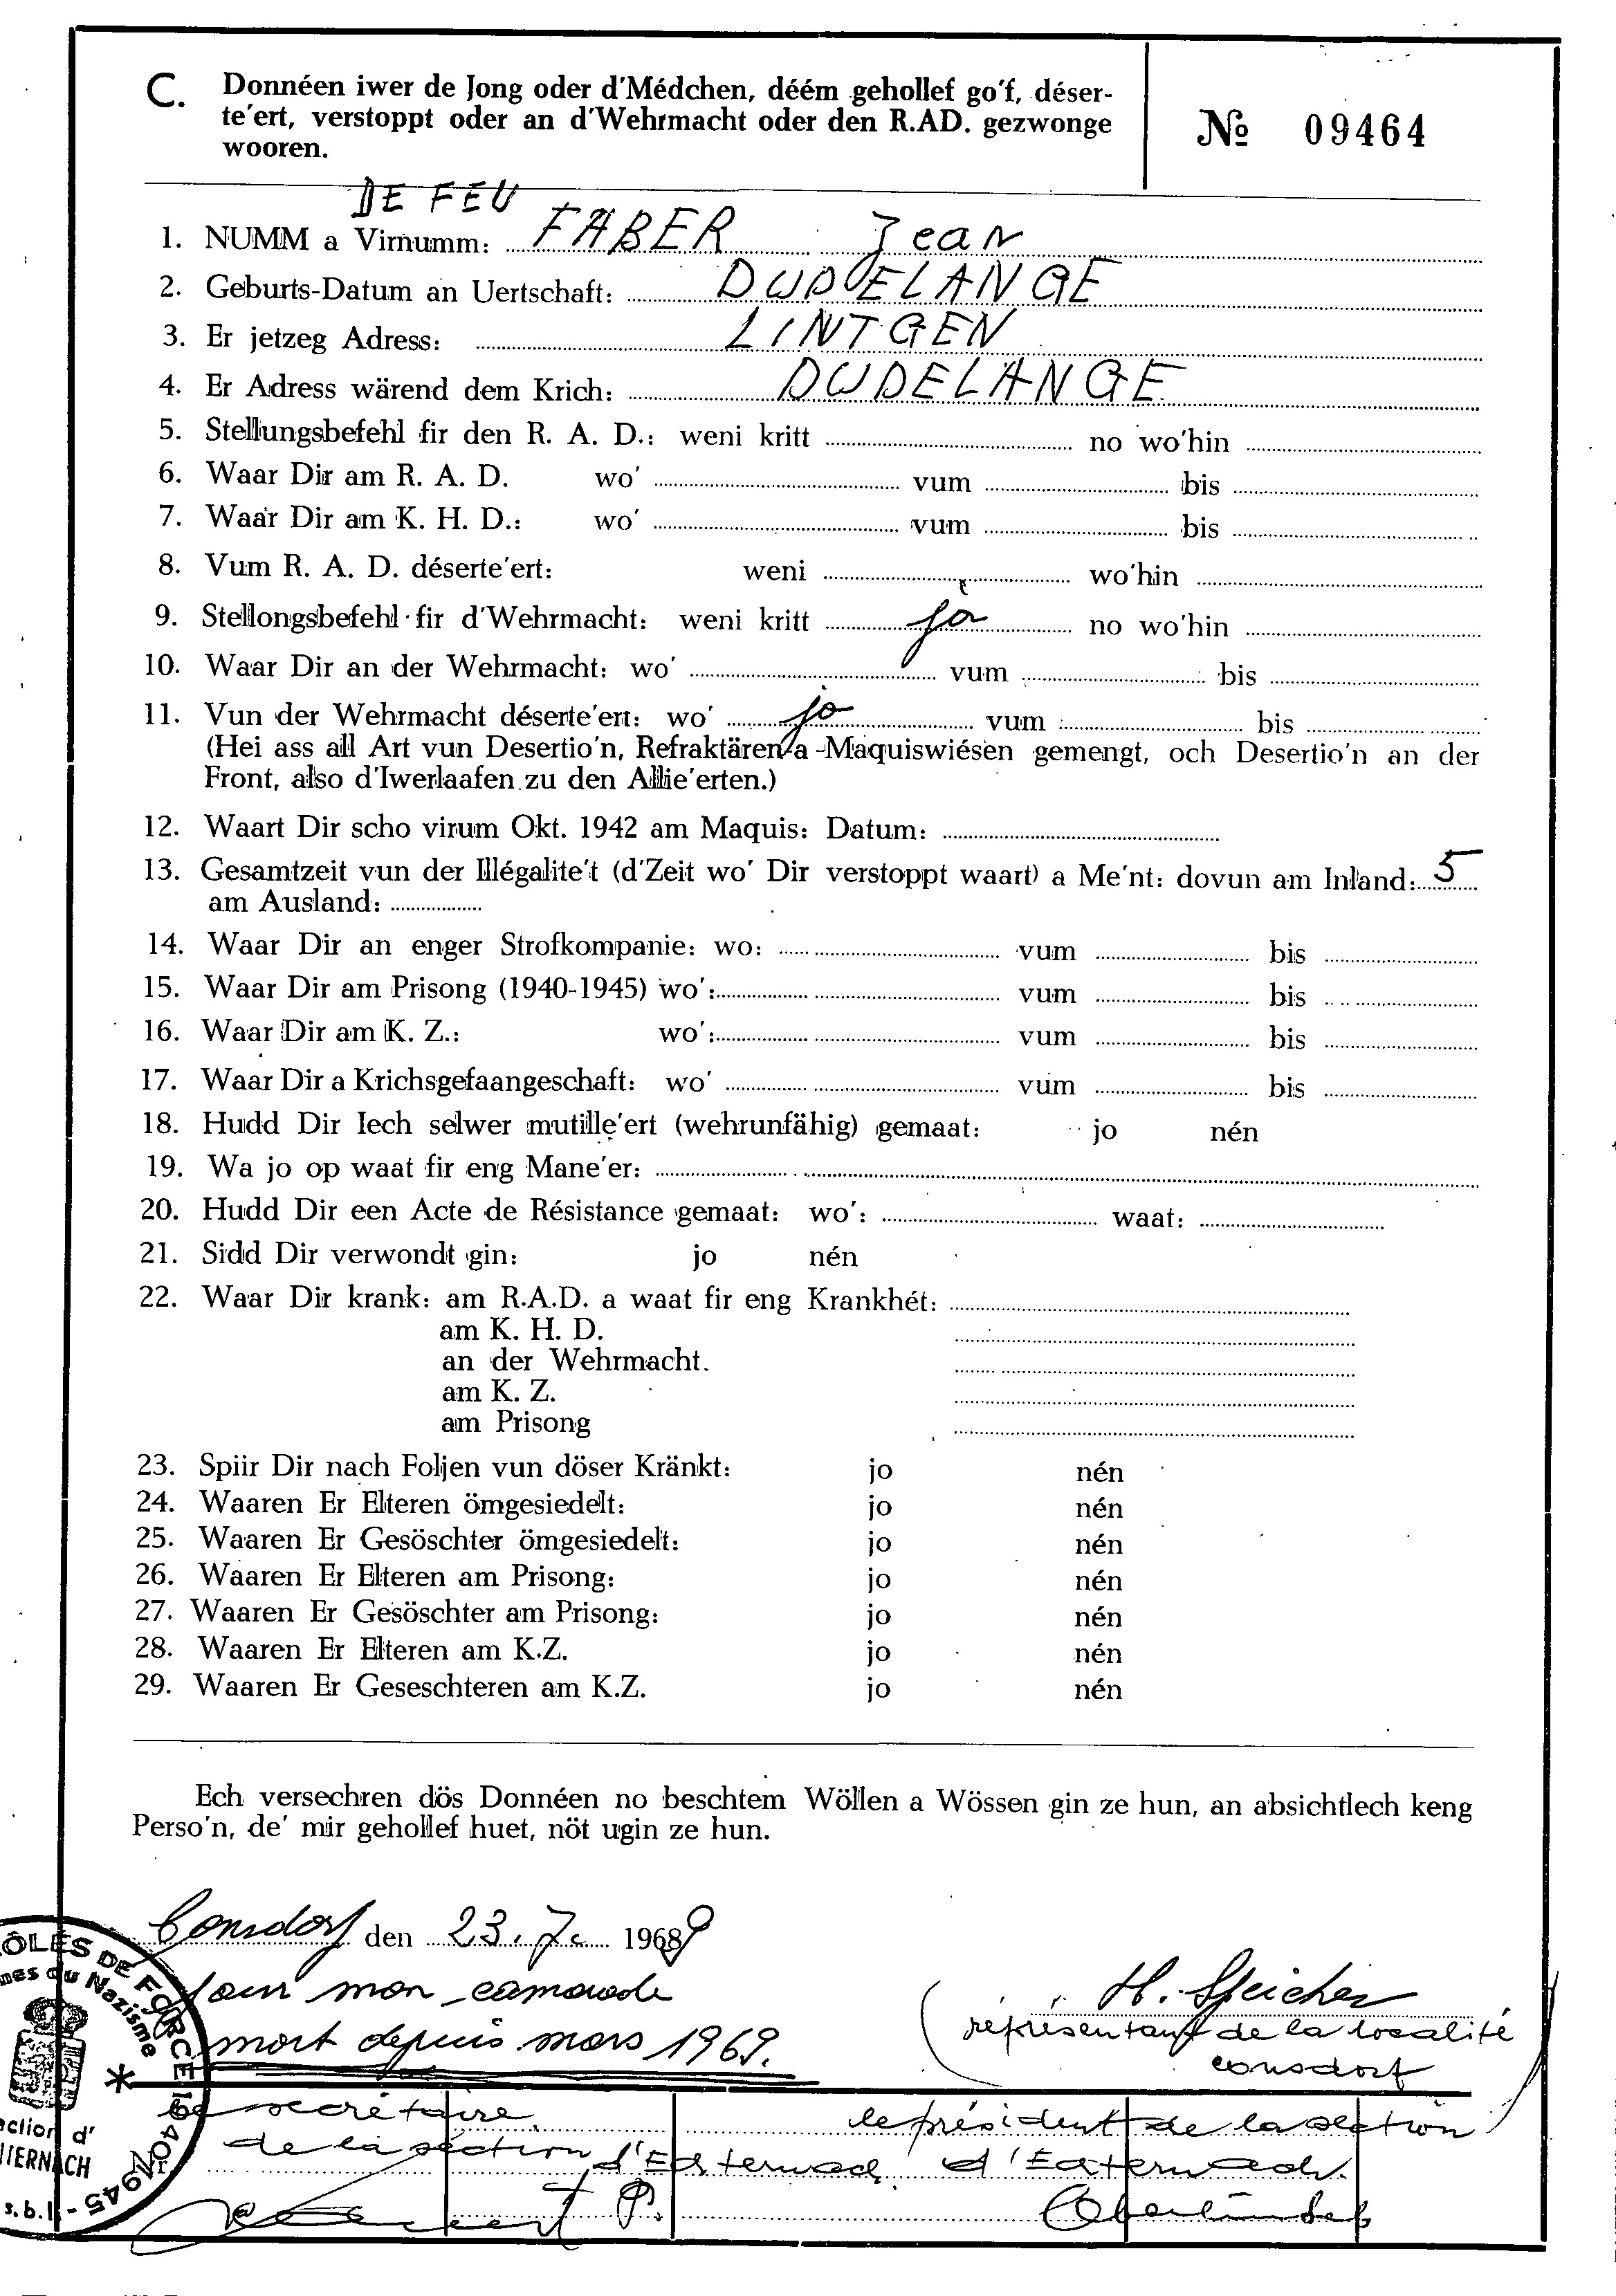 C. Donnéen iwer de Jong oder d'Médchen, déém gehollef go'f, déser-
te'ert, verstoppt oder an d'Wehrmacht oder den R.AD. gezwonge
wooren.
№ 09464
DE FEU
1. NUMM a Virnumm: FABER Jean
2. Geburts-Datum an Uertschaft: DUDELANGE
3. Er jetzeg Adress: LINTGEN
4. Er Adress wärend dem Krich: DUDELANGE
5. Stellungsbefehl fir den R. A. D.: weni kritt no wo'hin
6. Waar Dir am R. A. D. wo' vum bis
7. Waar Dir am K. H. D.: wo' vum bis
8. Vum R. A. D. déserte'ert: weni wo'hin
9. Stellongsbefehl fir d'Wehrmacht: weni kritt jo no wo'hin
10. Waar Dir an der Wehrmacht: wo' vum bis
11. Vun der Wehrmacht déserte'ert: wo' jo vum bis
(Hei ass all Art vun Desertio'n, Refraktären a Maquiswiésen gemengt, och Desertio'n an der
Front, also d'Iwerlaafen zu den Allie'erten.)
12. Waart Dir scho virum Okt. 1942 am Maquis: Datum:
13. Gesamtzeit vun der Illégalite't (d'Zeit wo' Dir verstoppt waart) a Me'nt: dovun am Inland: 5
am Ausland:
14. Waar Dir an enger Strofkompanie: wo: vum bis
15. Waar Dir am Prisong (1940-1945) wo': vum bis
16. Waar Dir am K. Z.: wo': vum bis
17. Waar Dir a Krichsgefaangeschaft: wo' vum bis
18. Hudd Dir Iech selwer mutille'ert (wehrunfähig) gemaat: jo nén
19. Wa jo op waat fir eng Mane'er:
20. Hudd Dir een Acte de Résistance gemaat: wo': waat:
21. Sidd Dir verwondt gin: jo nén
22. Waar Dir krank: am R.A.D. a waat fir eng Krankhét:
am K. H. D.
an der Wehrmacht.
am K. Z.
am Prisong
23. Spiir Dir nach Foljen vun döser Kränkt: jo nén
24. Waaren Er Elteren ömgesiedelt: jo nén
25. Waaren Er Gesöschter ömgesiedelt: jo nén
26. Waaren Er Elteren am Prisong: jo nén
27. Waaren Er Gesöschter am Prisong: jo nén
28. Waaren Er Elteren am K.Z. jo nén
29. Waaren Er Geseschteren am K.Z. jo nén
Ech versechren dös Donnéen no beschtem Wöllen a Wössen gin ze hun, an absichtlech keng
Perso'n, de' mir gehollef huet, nöt ugin ze hun.
Consdorf den 23.7. 1969
pour mon camarade
mort depuis mars 1969.
H. Speicher
représentant de la localité
consdorf
le secrétaire
de la section d'Echternach
P.
le président de la section
d'Echternach.
ÔLÉS DE FORCE 1940-1945
mes du Nazisme
ection d'
TERNACH
s.b.l.